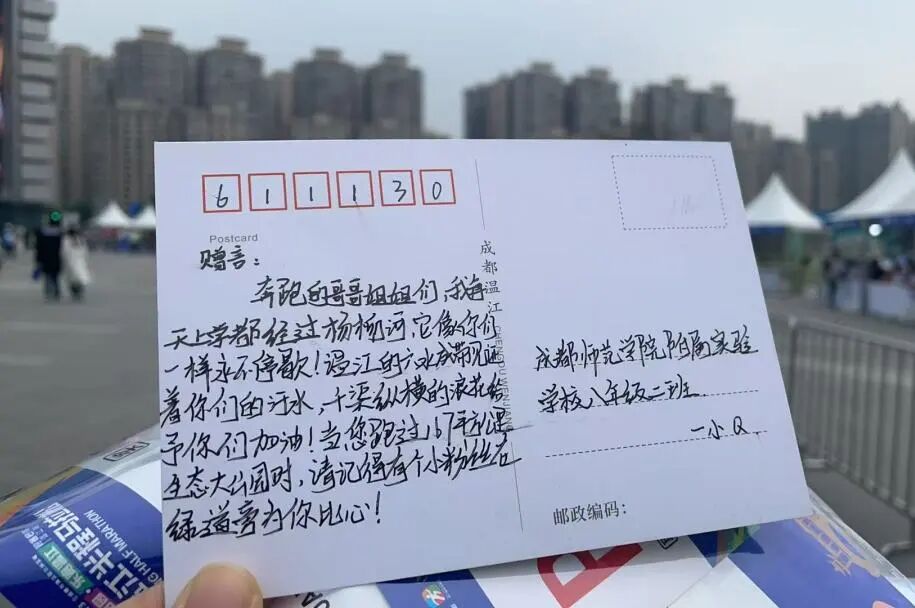 611130
Postcard
赠言：
奔跑的哥哥姐姐们，我每
天上学都经过杨柳河，它像你们
一样永不停歇！温江的六水成带见证
着你们的汗水，千渠纵横的浪花给
予你们加油！当您跑过167平方公里
生态大公园时，请记得有个小粉丝在
绿道旁为你比心！
成都温江 CHENGDU WENJIANG
成都师范学院附属实验
学校八年级二班
一小Q
邮政编码：
江半程马拉松
NG HALF MARATHON